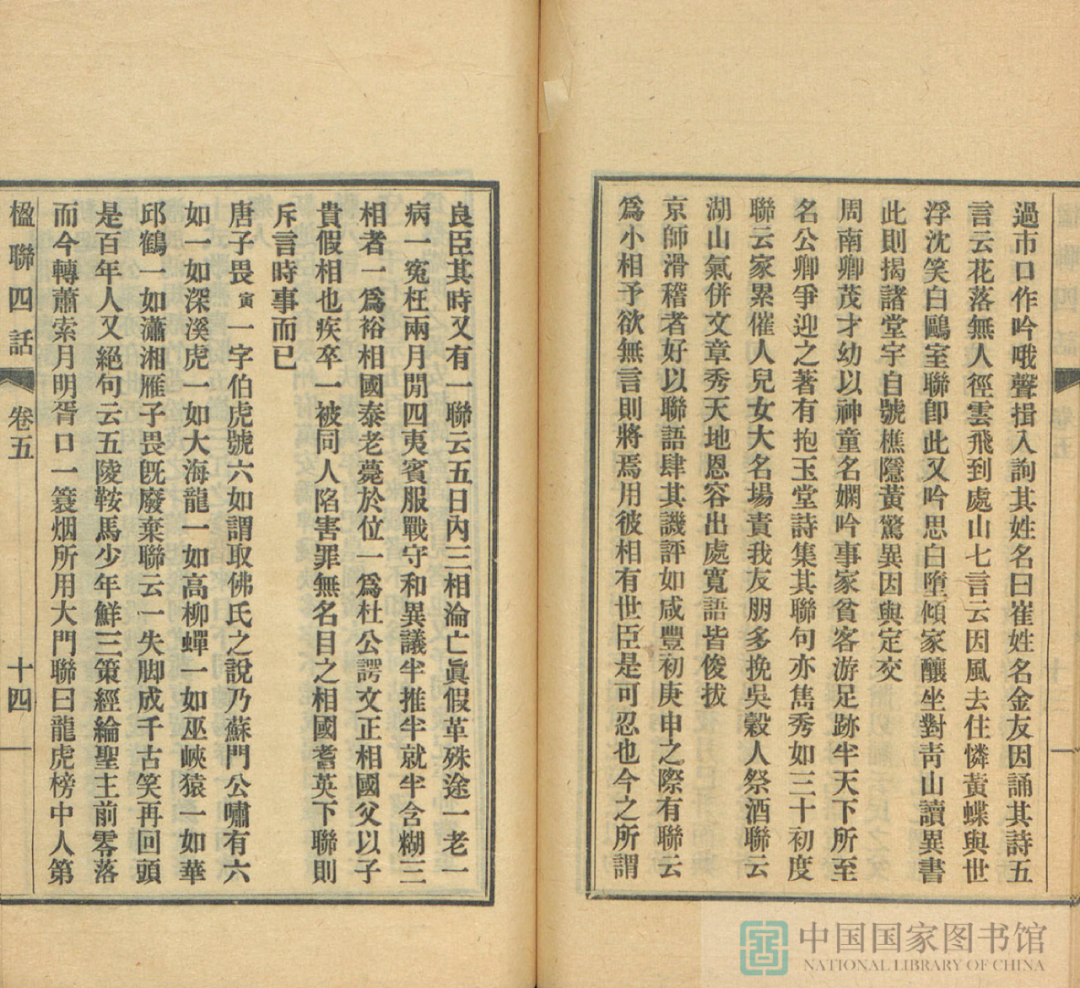 過市口作吟哦聲揖入詢其姓名曰崔姓名金友因誦其詩五
言云花落無人徑雲飛到處山七言云因風去住憐黃蝶與世
浮沈笑白鷗室聯卽此又吟思白墮傾家釀坐對靑山讀異書
此則揭諸堂宇自號樵隱黃驚異因與定交
周南卿茂才幼以神童名嫻吟事家貧客游足跡半天下所至
名公卿爭迎之著有抱玉堂詩集其聯句亦雋秀如三十初度
聯云家累催人兒女大名場責我友朋多挽吳穀人祭酒聯云
湖山氣併文章秀天地恩容出處寬語皆俊拔
京師滑稽者好以聯語肆其譏評如咸豐初庚申之際有聯云
爲小相予欲無言則將焉用彼相有世臣是可忍也今之所謂
良臣其時又有一聯云五日內三相淪亡眞假革殊途一老一
病一冤枉兩月閒四夷賓服戰守和異議半推半就半含糊三
相者一爲裕相國泰老薨於位一爲杜公諤文正相國父以子
貴假相也疾卒一被同人陷害罪無名目之相國耆英下聯則
斥言時事而已
唐子畏寅一字伯虎號六如謂取佛氏之說乃蘇門公嘯有六
如一如深溪虎一如大海龍一如高柳蟬一如巫峽猿一如華
邱鶴一如瀟湘雁子畏旣廢棄聯云一失脚成千古笑再回頭
是百年人又絕句云五陵鞍馬少年鮮三策經綸聖主前零落
而今轉蕭索月明胥口一簑烟所用大門聯曰龍虎榜中人第
楹聯四話 卷五 十四
中国国家图书馆
NATIONAL LIBRARY OF CHINA